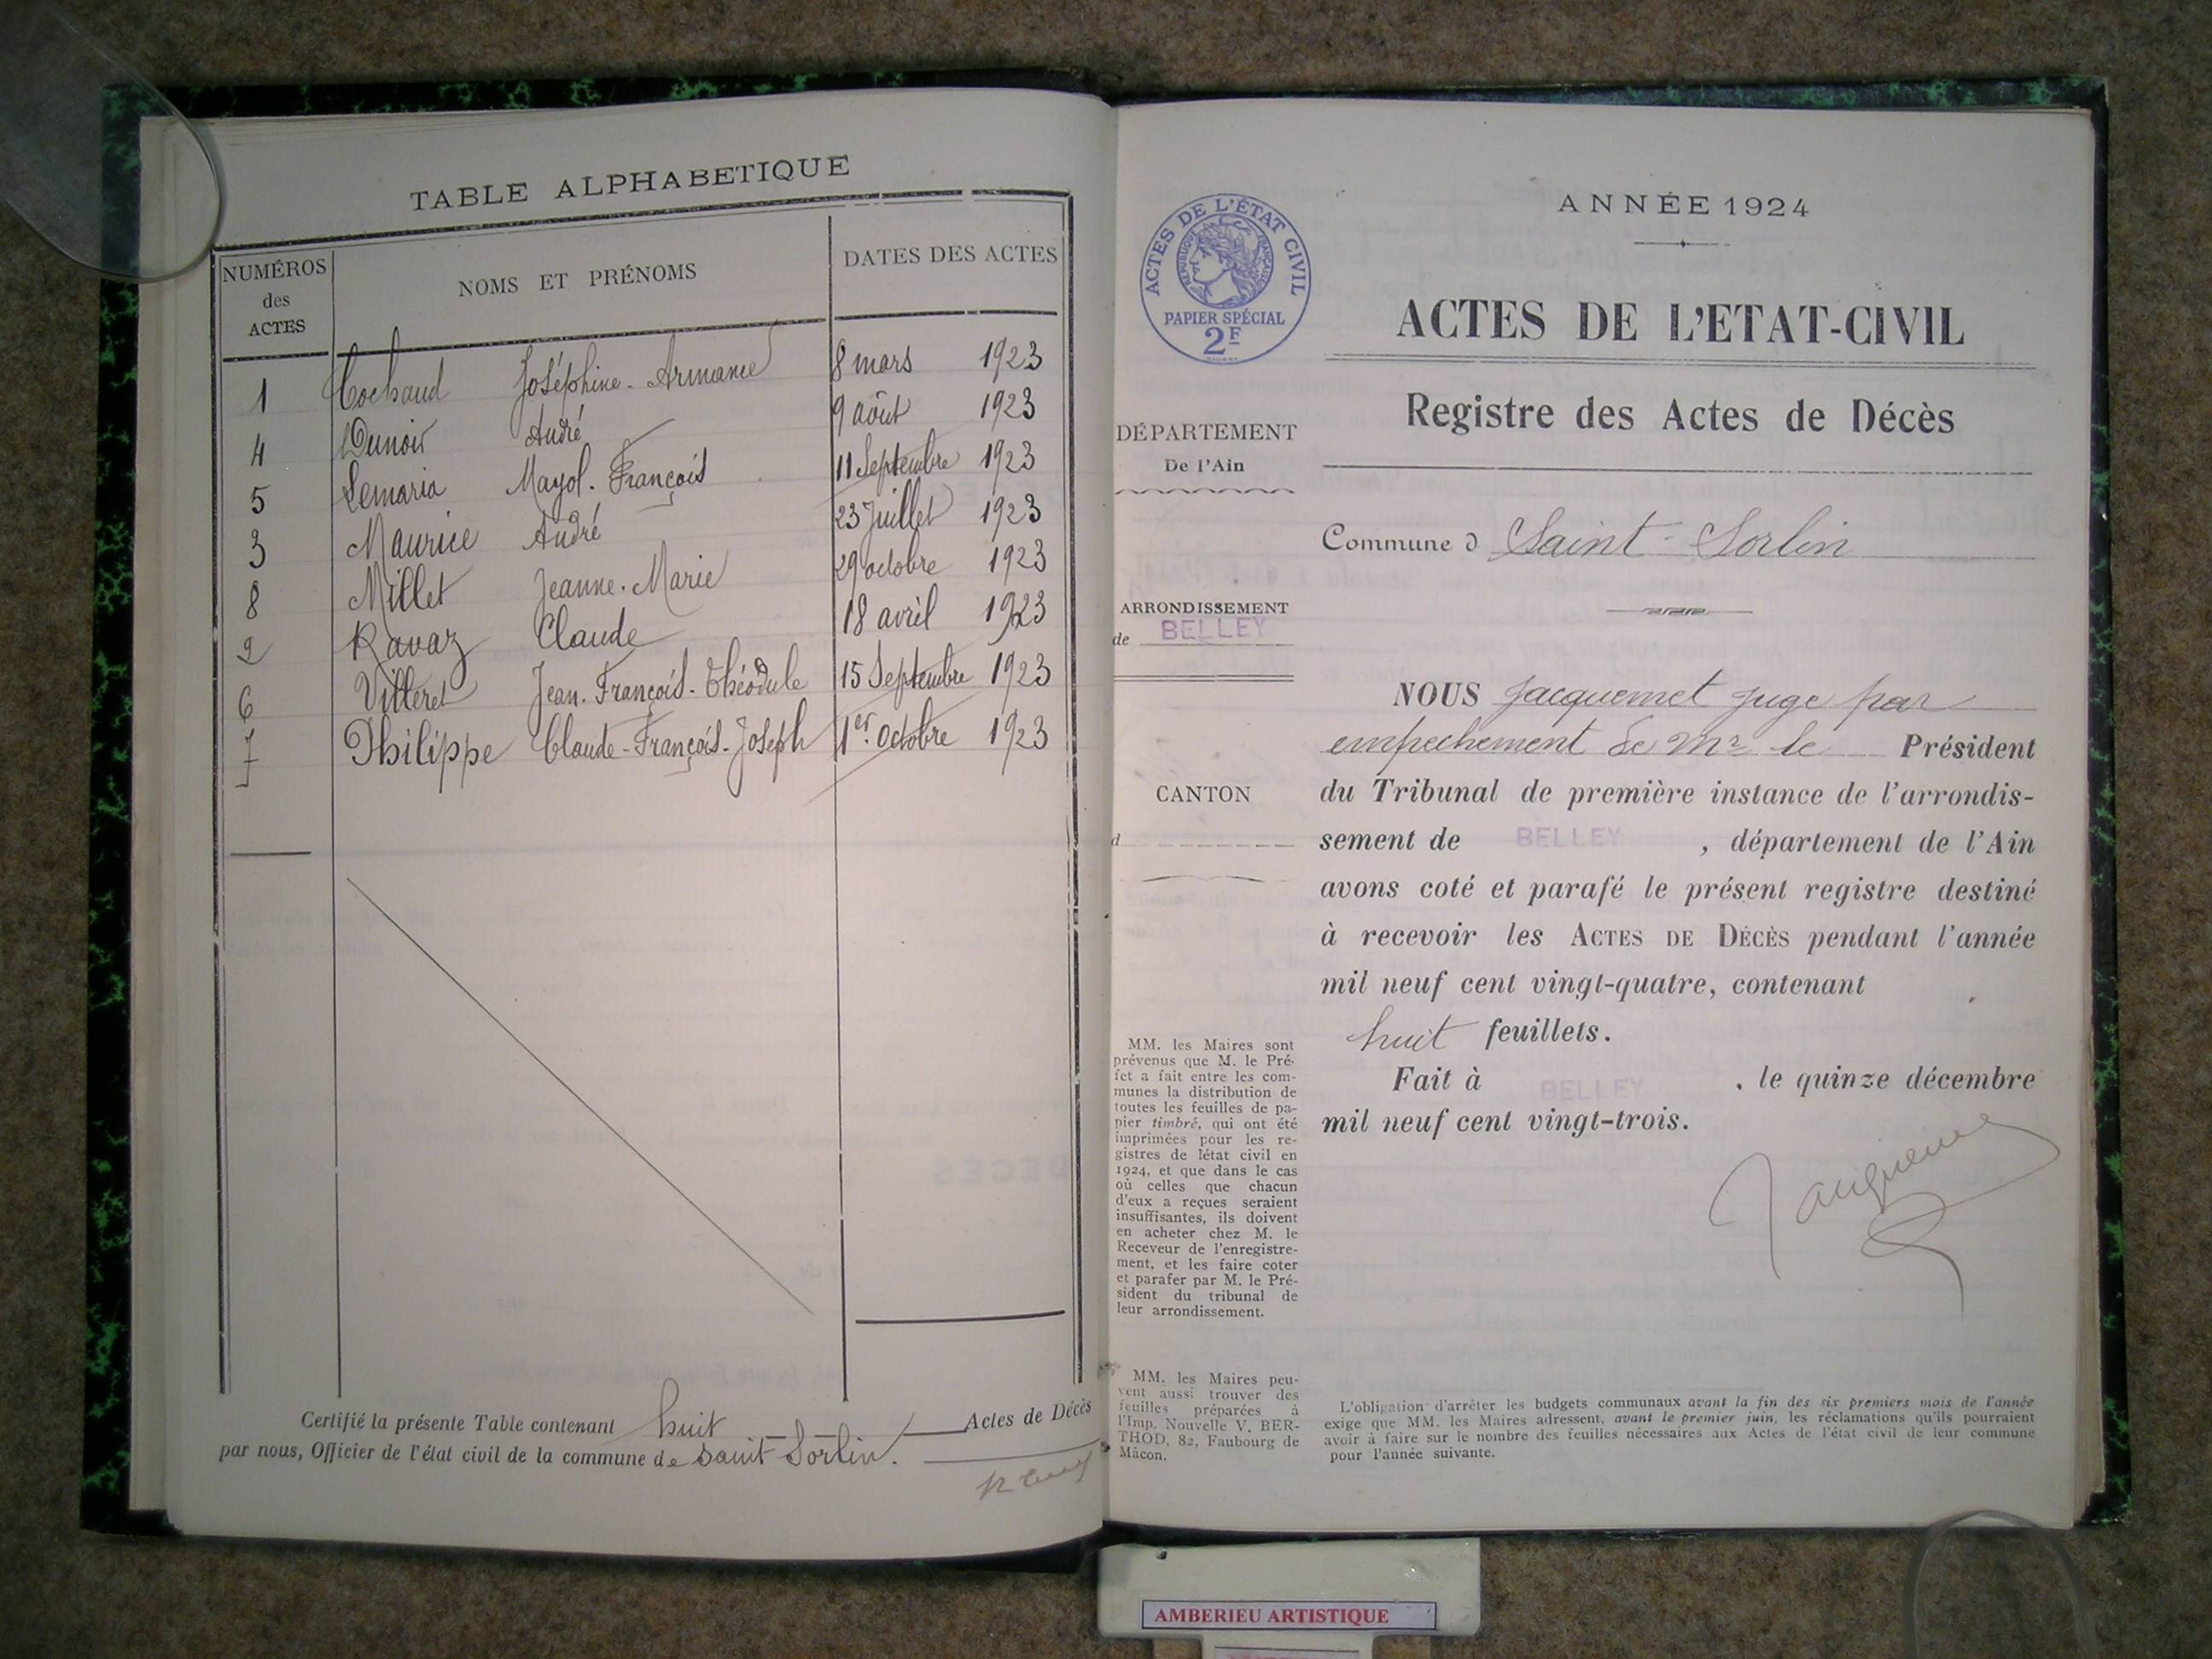 TABLE ALPHABETIQUE
NUMÉROS des ACTES
NOMS ET PRÉNOMS
DATES DES ACTES
1 Cochaud Joséphine-Armance 8 mars 1923
4 Dunoir André 9 août 1923
5 Lemaria Mayol. François 11 Septembre 1923
3 Maurice André 23 Juillet 1923
8 Millet Jeanne-Marie 29 octobre 1923
2 Ravaz Claude 18 avril 1923
6 Villeret Jean-François-Théodule 15 Septembre 1923
7 Philippe Claude-François-Joseph 1er octobre 1923
Certifié la présente Table contenant huit Actes de Décès
par nous, Officier de l'état civil de la commune de Saint-Sorlin.
ACTES DE L'ÉTAT CIVIL
RÉPUBLIQUE FRANÇAISE
PAPIER SPÉCIAL
2F
DÉPARTEMENT
De l'Ain
ARRONDISSEMENT
de BELLEY
CANTON
d
MM. les Maires sont
prévenus que M. le Pré-
fet a fait entre les com-
munes la distribution de
toutes les feuilles de pa-
pier timbré, qui ont été
imprimées pour les re-
gistres de l'état civil en
1924, et que dans le cas
où celles que chacun
d'eux a reçues seraient
insuffisantes, ils doivent
en acheter chez M. le
Receveur de l'enregistre-
ment, et les faire coter
et parafer par M. le Pré-
sident du tribunal de
leur arrondissement.
MM. les Maires peu-
vent aussi trouver des
feuilles préparées à
l'Imp. Nouvelle V. BER-
THOD, 82, Faubourg de
Mâcon.
ANNÉE 1924
ACTES DE L'ETAT-CIVIL
Registre des Actes de Décès
Commune d Saint-Sorlin
NOUS Jacquemet juge par
empechement de Mr le Président
du Tribunal de première instance de l'arrondis-
sement de BELLEY, département de l'Ain
avons coté et parafé le présent registre destiné
à recevoir les ACTES DE DÉCÈS pendant l'année
mil neuf cent vingt-quatre, contenant
huit feuillets.
Fait à BELLEY, le quinze décembre
mil neuf cent vingt-trois.
L'obligation d'arrêter les budgets communaux avant la fin des six premiers mois de l'année
exige que MM. les Maires adressent, avant le premier juin, les réclamations qu'ils pourraient
avoir à faire sur le nombre des feuilles nécessaires aux Actes de l'état civil de leur commune
pour l'année suivante.
AMBERIEU ARTISTIQUE